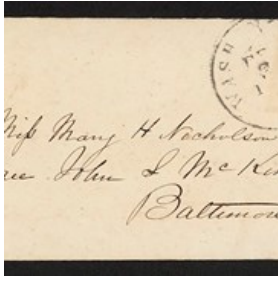 WASH
Miss Mary H Nicholson
John S McKim
Baltimore